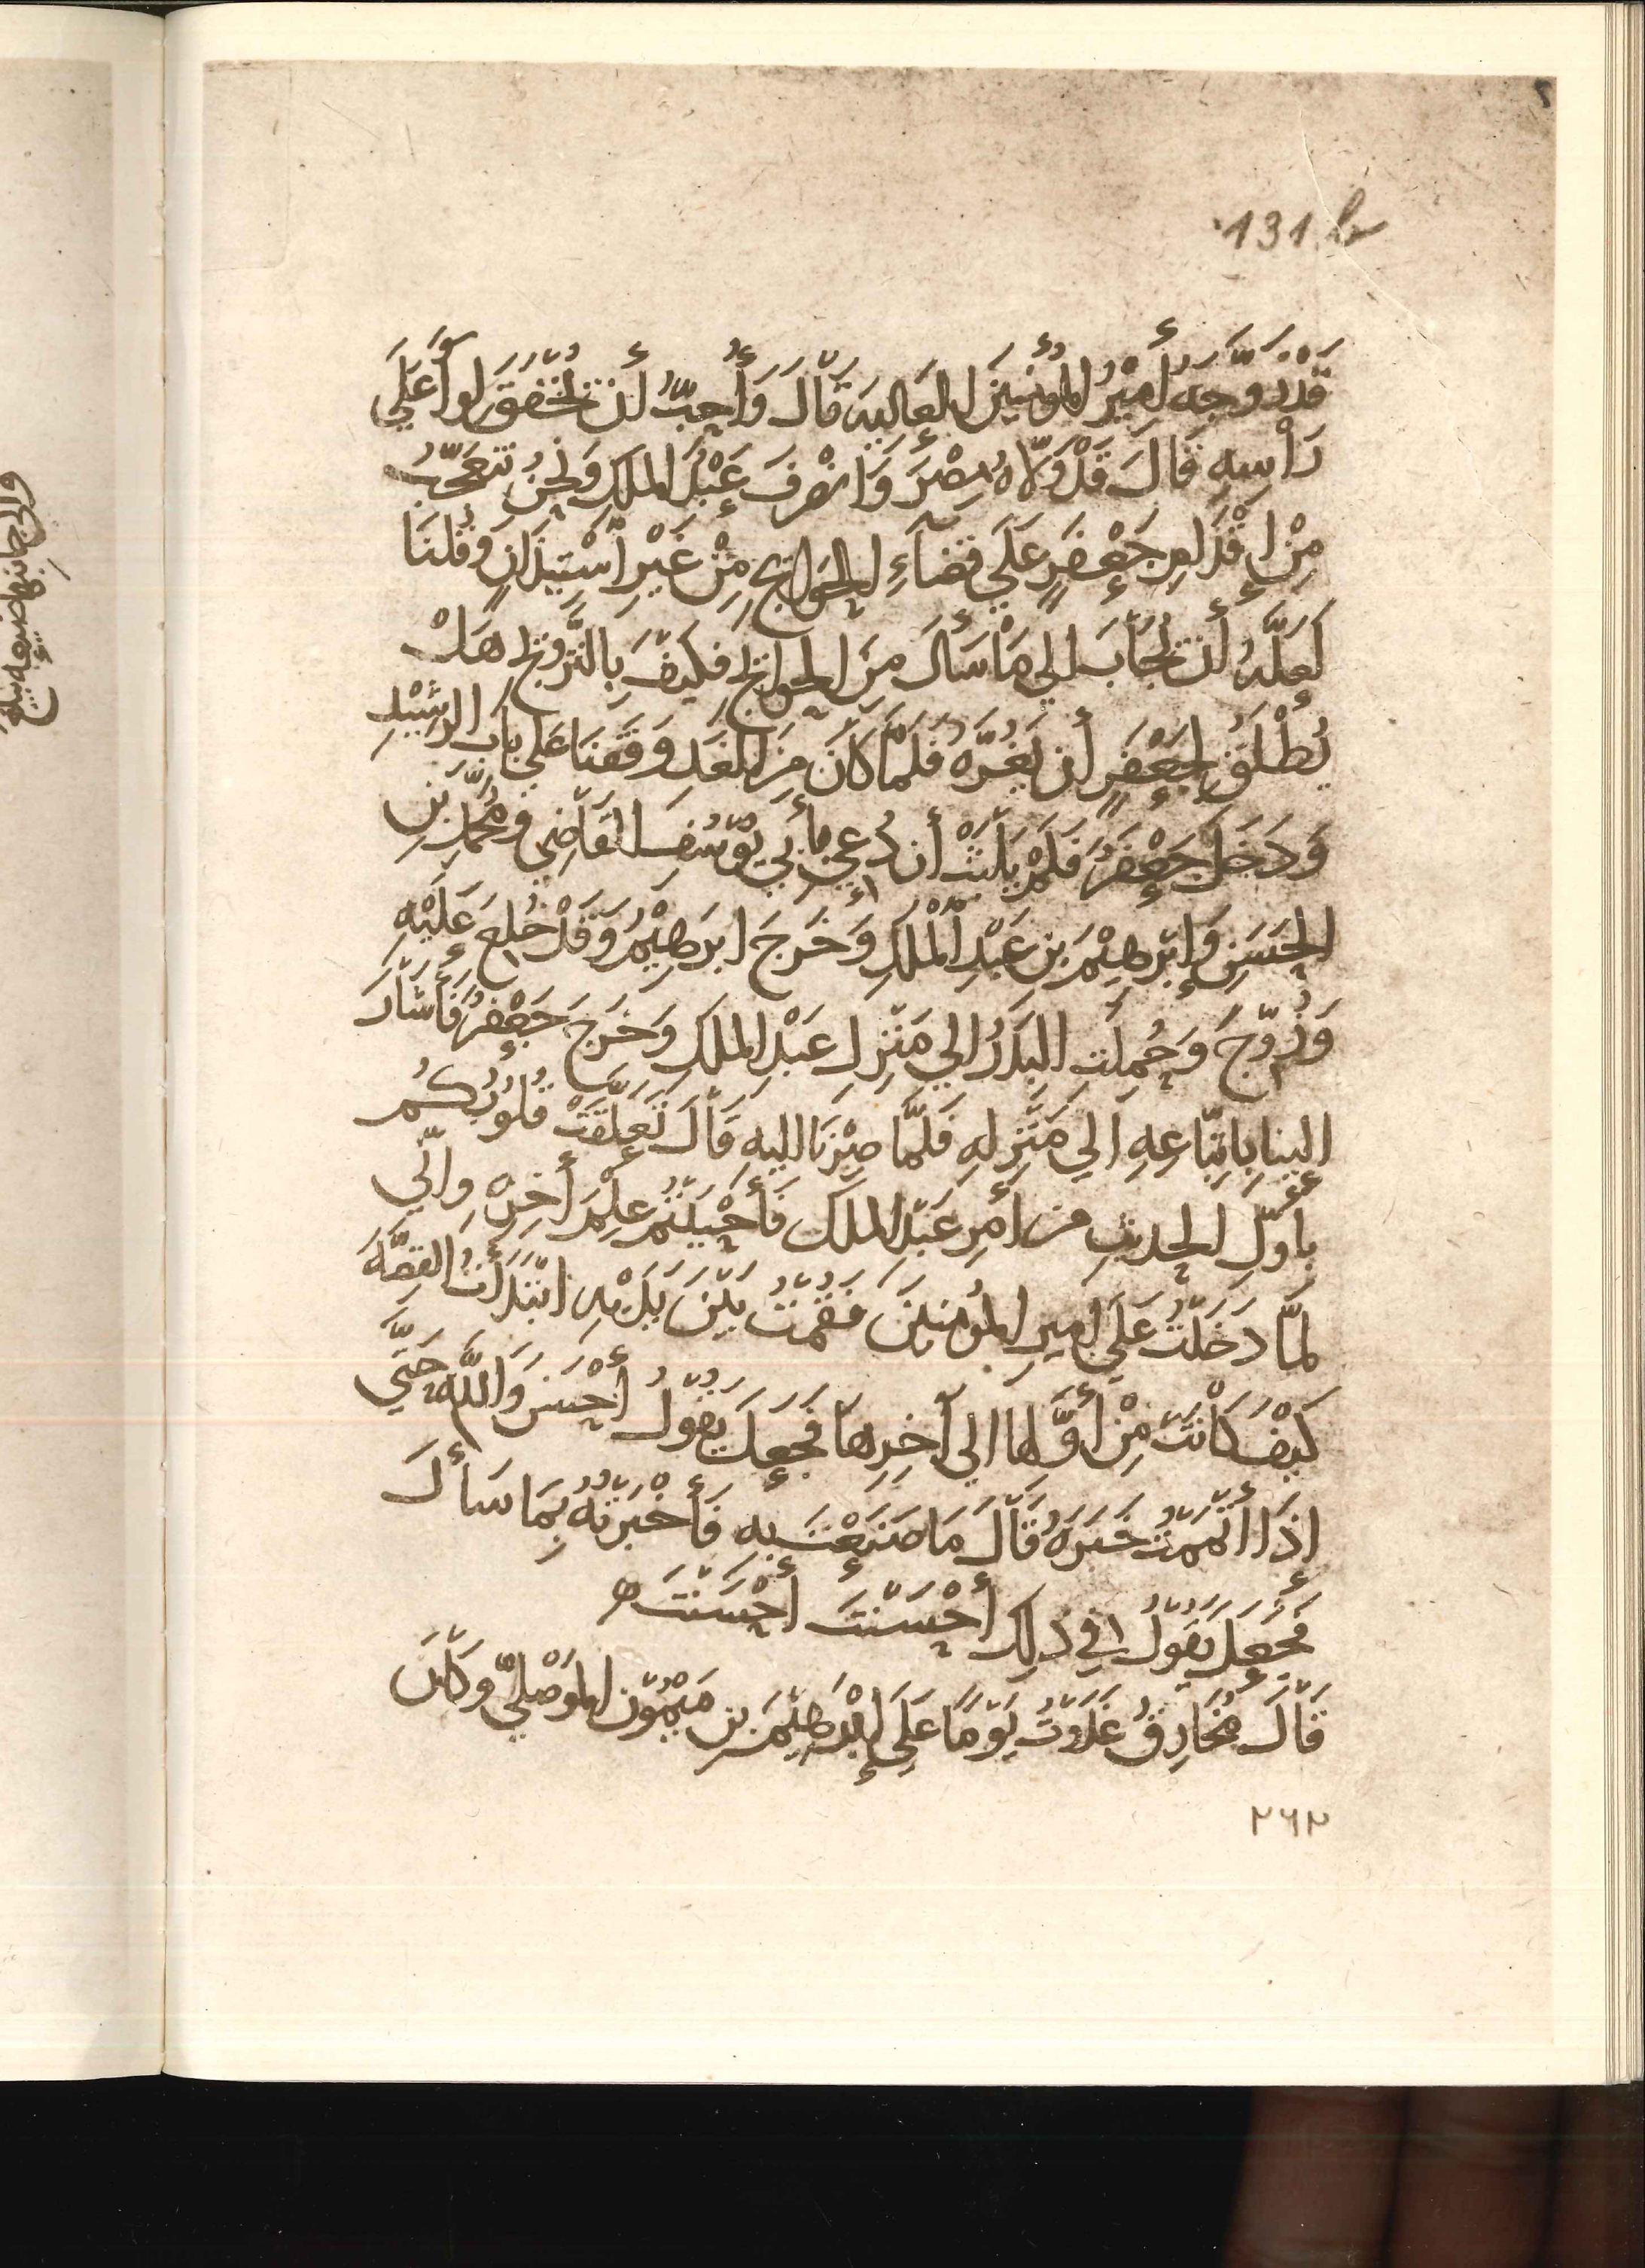 131 b
قَدْ زَوَّجَهُ أَمِيْرُ المُؤْمِنِيْنَ العَاليه قَالَ وَأُحِبُّ أَن تَخْفُقَ لوآ عَلَي
رَأْسِهِ قَالَ قَدْ وَلَّاهُ مِصْرَ وَانْصْرفَ عَبْدُ المَلِكِ وَنَحْنُ نَتَعَجَّبُ
مِنْ إِقْدَامِ جَعْفَرٍ عَلَي قضآءِ الحَوَايجِ مِنْ غَيْرِ اسْتِيذَانٍ وَقُلنَا
لَعَلَّهُ أَن يُجَابَ الي مَا سَأَلَ مِنَ الحَوايج فكَيفَ بِالتَّزوِيجِ هَلْ
يُطْلَقُ لِجَعْفَرٍ أن يَغُرَّهُ فَلَمَّا كَانَ مِنَ الغَدِ وَقَفنَا عَلي بابِ الرَشِيْدِ
وَدَخَلَ جَعْفَرُ فَلَمْ يَلْبَثْ أن دُعِي بِأَبي يُوسُفَ القَاضِي وَمُحَمَّد بنِ
الحَسَنِ وَإِبْرَهِيْمَ بن عَبْدِ المَلِكِ وَخَرَجَ ابرَهِيْمُ وَقَدْ خُلِعَ عَلَيْهِ
وَزُوّجَ وَحُمِلَتِ البِدَرُ الي مَنْزِلِ عَبْدِ المَلكِ وَخَرَجَ جَعْفَرُ فَأَشَارَ
الينا بِاتّبَاعِهِ الي مَنْزِلهِ فَلَمَّا صِرْنَا اليهِ قَالَ تَعَلَّقَتْ قُلُوبُكُمْ
بأَوّلِ الحَديثِ من أمرِ عَبْدِ المَلك فَأَحْبَبْتُم عِلْمَ أَخِرِه وإنّي
لمَّا دَخَلتُ عَلَي امِيرِ المُؤمِنينَ فَقُمْتُ بَيْنَ يَدَيْهِ ابْتَدَأْتُ القِصَّةَ
كَيْفَ كَانَتْ مِنْ أَوَّلِهَا الي آخِرِهَا فَجَعَلَ يَقُولُ أَحْسَنَ وَاللَّهِ حَتَّي
اذَا أَتْمَمْتُ خَبَرَهُ قَالَ مَا صَنَعْتَ بِهِ فَأَخْبَرْتُهُ بِمَا سَأَلَ
فَجَعَلَ يَقُولُ فِي ذلِكَ أَحْسَنْتَ أَحْسَنْتَ ه
قَالَ مُخَارِقُ غَدَوْتُ يَوْمًا عَلَي إِبْرَهِيْمَ بن مَيْمُوْنِ المَوْصِليّ وَكَانَ
٢٦٢